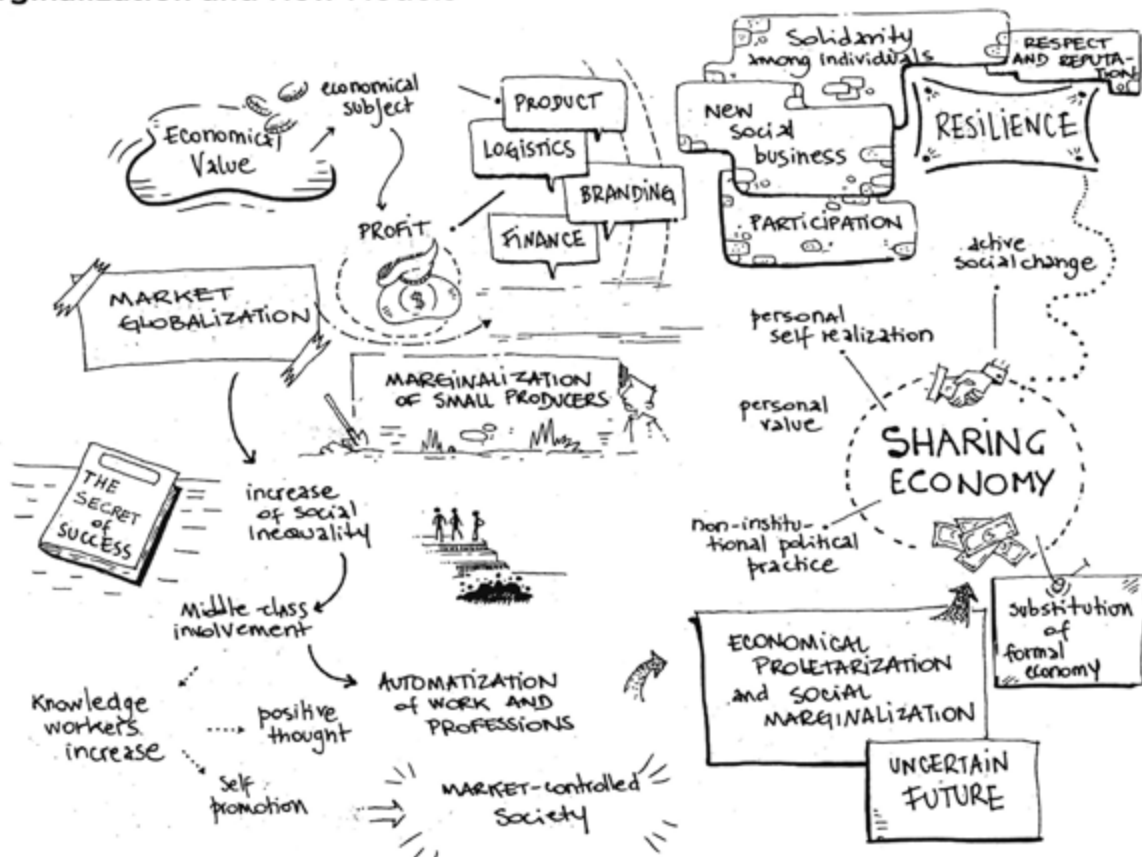 economical
subject
Economical
Value
PROFIT
$
PRODUCT
LOGISTICS
BRANDING
FINANCE
MARKET
GLOBALIZATION
MARGINALIZATION
OF SMALL PRODUCERS
THE
SECRET
of
SUCCESS
increase
of social
inequality
Middle-class
involvement
Knowledge
workers
increase
positive
thought
self
promotion
AUTOMATIZATION
of WORK AND
PROFESSIONS
MARKET-controlled
Society
Solidarity
among individuals
RESPECT
AND REPUTA-
TION
NEW
social
business
RESILIENCE
PARTICIPATION
active
social change
personal
self realization
personal
value
SHARING
ECONOMY
non-institu-
tional political
practice
substitution
of
formal
economy
ECONOMICAL
PROLETARIZATION
and SOCIAL
MARGINALIZATION
UNCERTAIN
FUTURE